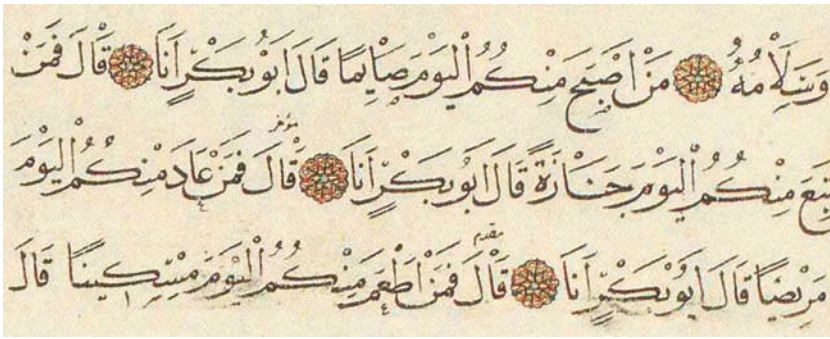 وَسَلَامُهُ مَنْ اَصْبَحَ مِنْكُمُ الْيَوْمَ صَايِمًا قَالَ اَبُو بَكْرٍ اَنَا قَالَ فَمَنْ
تَبِعَ مِنْكُمُ الْيَوْمَ جَنَازَةً قَالَ اَبُو بَكْرٍ اَنَا مؤخر قَالَ فَمَنْ عَادَ مِنْكُمُ الْيَوْمَ
مَرِيضًا قَالَ اَبُو بَكْرٍ اَنَا مقدم قَالَ فَمَنْ اَطْعَمَ مِنْكُمُ الْيَوْمَ مِسْكِينًا قَالَ